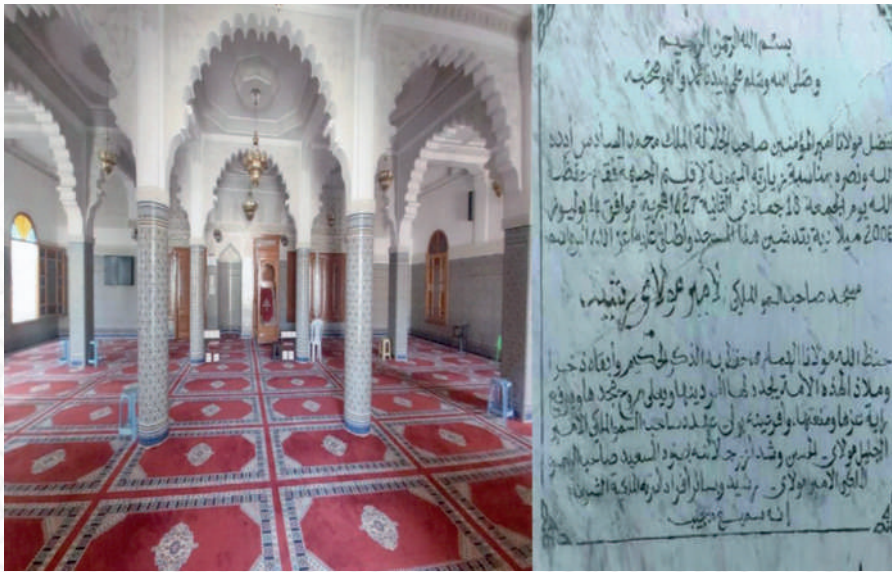 بسم الله الرحمن الرحيم
وصلى الله وسلم على سيدنا محمد وآله وصحبه
تفضل مولانا أمير المؤمنين صاحب الجلالة الملك محمد السادس أيده
الله ونصره بمناسبة زيارته الميمونة لإقليم الحسيمة فقام حفظه
الله يوم الجمعة 18 جمادى الثانية 1427 هجرية موافق 14 يوليوز
2006 ميلادية بتدشين هذا المسجد وأطلق عليه أعز الله أمره اسم
مسجد صاحب السمو الملكي الأمير مولاي رشيد
حفظ الله مولانا الإمام بما حفظ به الذكر الحكيم وأبقاه ذخرا
وملاذا لهذه الأمة يجدد لها أمر دينها ويعلي من مجدها ويرفع
راية عزها ومنعتها وأقر عينه بولي عهده صاحب السمو الملكي الأمير
الجليل مولاي الحسن وشد أزر جلالته بصنوه السعيد صاحب السمو
الملكي الأمير مولاي رشيد وسائر أفراد أسرته الملكية الشريفة
إنه سميع مجيب